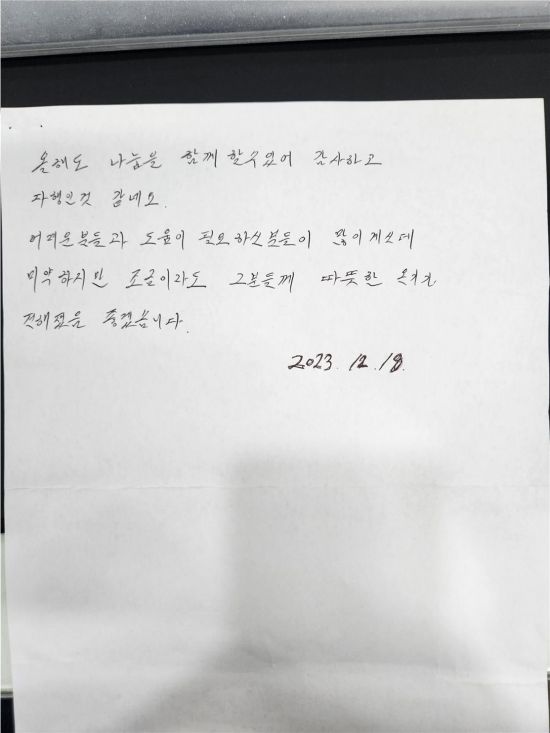 올해도 나눔을 함께 할수있어 감사하고
다행인것 같네요.
어려운분들과 도움이 필요하신분들이 많이계신데
미약하지만 조금이라도 그분들께 따뜻한 온기가
전해졌음 좋겠습니다.
2023. 12. 18.